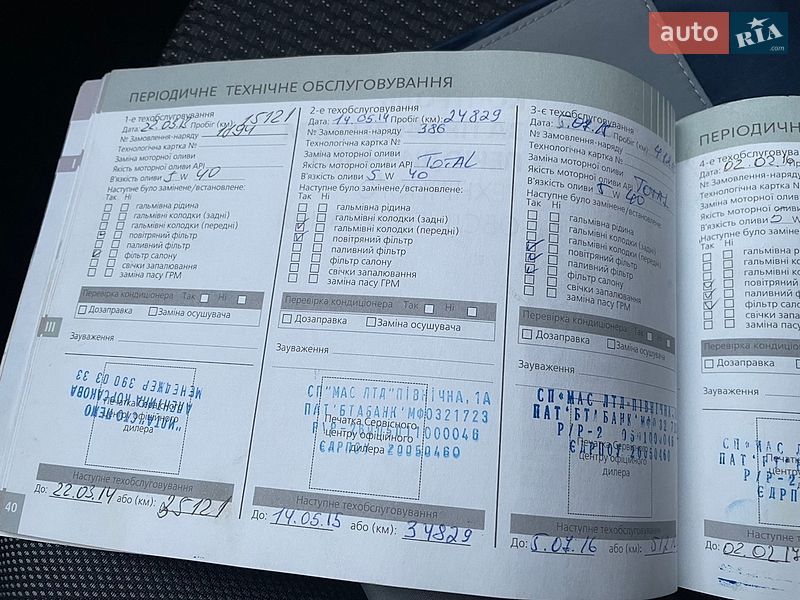 auto RIA.com
ПЕРІОДИЧНЕ ТЕХНІЧНЕ ОБСЛУГОВУВАННЯ
1-е техобслуговування
Дата: 22.03.13 Пробіг (км): 15121
№ Замовлення-наряду 1194
Технологічна картка №
Заміна моторної оливи
Якість моторної оливи API
В'язкість оливи 5 W 40
Наступне було замінене/встановлене:
Так Ні
гальмівна рідина
гальмівні колодки (задні)
гальмівні колодки (передні)
повітряний фільтр
паливний фільтр
фільтр салону
свічки запалювання
заміна пасу ГРМ
Перевірка кондиціонера Так Ні
Дозаправка Заміна осушувача
Зауваження
МЕНЕДЖЕР 390 03 33
Печатка Сервісного
центру офіційного
дилера
Наступне техобслуговування
До: 22.03.14 або (км): 25121
40
III
2-е техобслуговування
Дата: 14.05.14 Пробіг (км): 24829
№ Замовлення-наряду 386
Технологічна картка №
Заміна моторної оливи
Якість моторної оливи API TOTAL
В'язкість оливи 5 W 40
Наступне було замінене/встановлене:
Так Ні
гальмівна рідина
гальмівні колодки (задні)
гальмівні колодки (передні)
повітряний фільтр
паливний фільтр
фільтр салону
свічки запалювання
заміна пасу ГРМ
Перевірка кондиціонера Так Ні
Дозаправка Заміна осушувача
Зауваження
СП"МАС ЛТД"ПІВНІЧНА,1А
ПАТ'БТАБАНК'МФО321723
Печатка Сервісного
центру офіційного
дилера
ЄДРПОУ 20050460
Наступне техобслуговування
До: 14.05.15 або (км): 34829
3-є техобслуговування
Дата: 5.07.15 Пробіг (км):
№ Замовлення-наряду
Технологічна картка №
Заміна моторної оливи
Якість моторної оливи API TOTAL
В'язкість оливи 5 W 40
Наступне було замінене/встановлене:
Так Ні
гальмівна рідина
гальмівні колодки (задні)
гальмівні колодки (передні)
повітряний фільтр
паливний фільтр
фільтр салону
свічки запалювання
заміна пасу ГРМ
Перевірка кондиціонера Так Ні
Дозаправка Заміна осушувача
Зауваження
Печатка Сервісного
центру офіційного
дилера
ЄДРПОУ 20050460
Наступне техобслуговування
До: 5.07.16 або (км):
ПЕРІОДИЧН
4-е техобслугову
Дата: 02.02.
№ Замовлення-наряд
Технологічна картка
Заміна моторної оли
Якість моторної олив
В'язкість оливи 5
Наступне було замін
Так Ні
гальмівна
гальмівні
гальмівні
повітряни
паливний
фільтр сало
свічки запа
заміна пас
Перевірка кондиц
Дозаправка
Зауваження
Наступне
До: 02.02.17